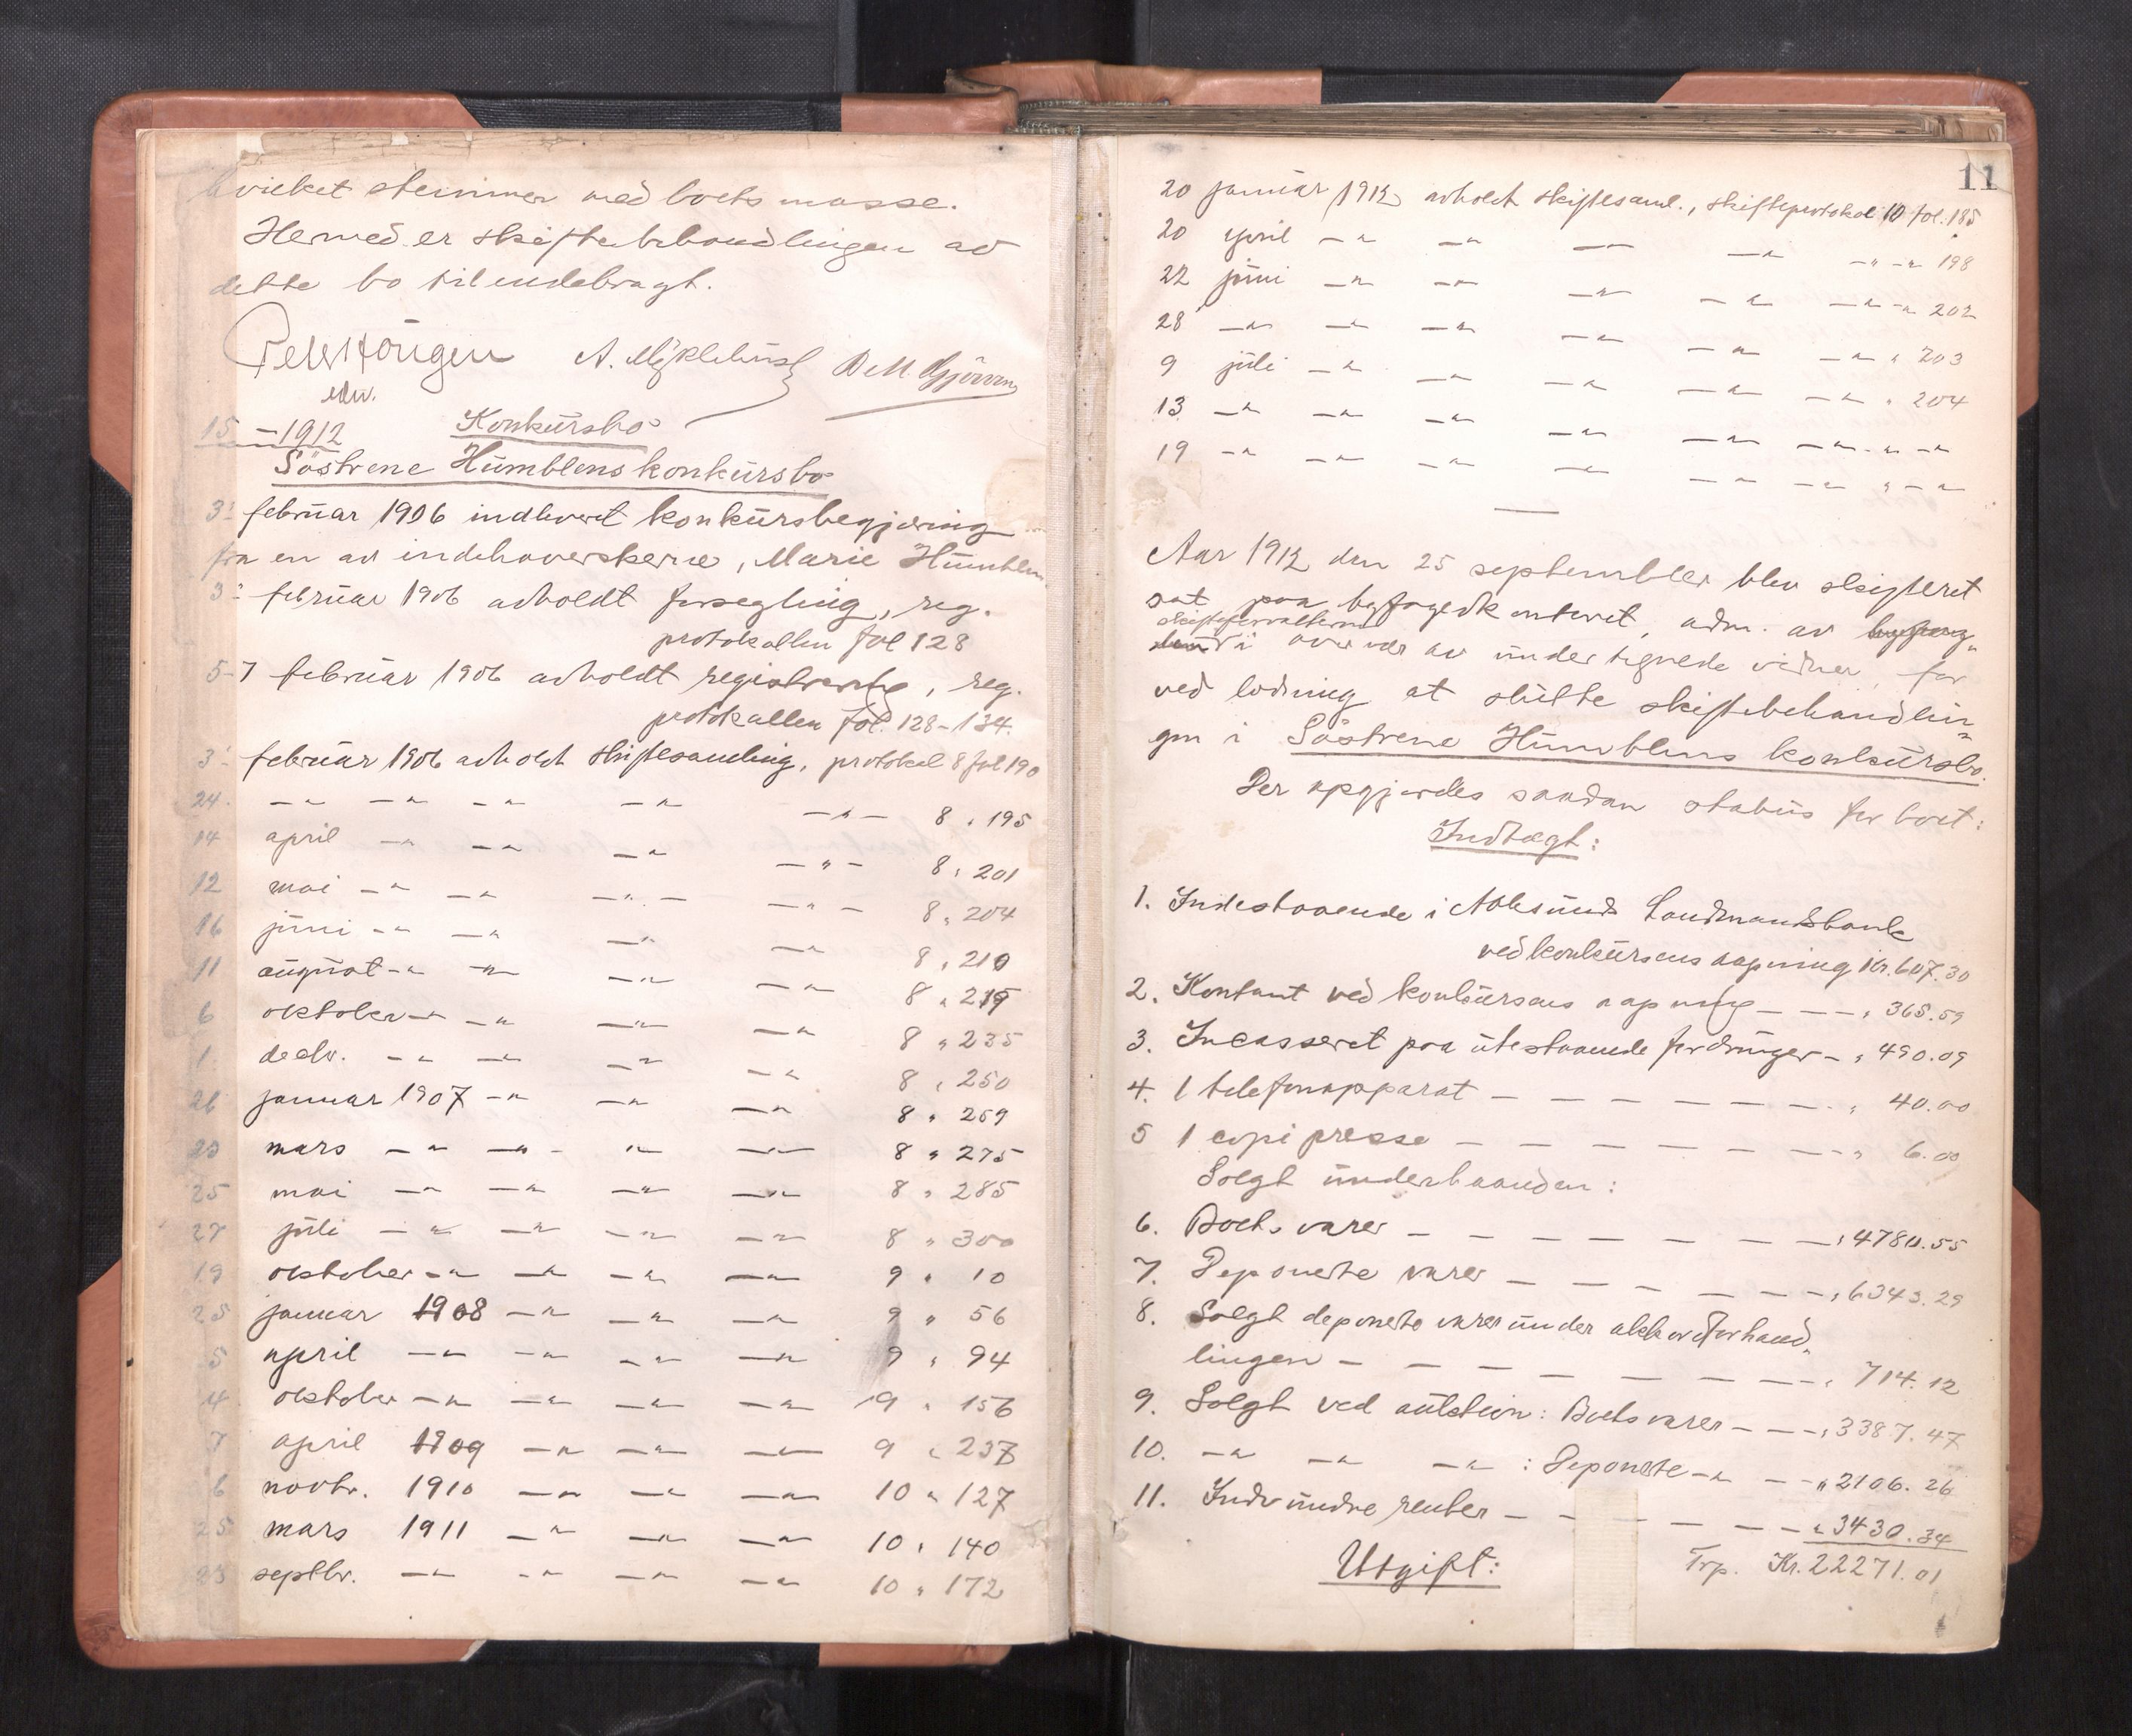 hvilket stemmer med boets masse.
Hermed er skiftebehandlingen av
dette bo tilendebragt.
A. Myklebust
edv.
15 — 1912 Konkursbo
Söstrene Humblens konkursbo
3. februar 1906 indleveret konkursbegjæring
fra en av indehaverskerne, Marie Humblen
3. februar 1906 avholdt forsegling, reg.
protokollen fol 128
5-7 februar 1906 avholdt registrering, reg.
protokollen fol. 128-134.
3. februar 1906 avholdt skiftesamling, protokol 8 fol 190
24. —"— —"— —"— —"— —"— 8 " 195
14 april —"— —"— —"— —"— 8 " 201
12 mai —"— —"— —"— —"— 8 " 204
16 juni —"— —"— —"— —"— 8 " 210
11 august —"— —"— —"— —"— 8 " 219
6 oktober —"— —"— —"— —"— 8 " 235
1. decbr. —"— —"— —"— —"— 8 " 250
26 januar 1907 —"— —"— —"— 8 " 259
23 mars —"— —"— —"— —"— 8 " 275
25 mai —"— —"— —"— —"— 8 " 285
27 juli —"— —"— —"— —"— 8 " 300
19 oktober —"— —"— —"— —"— 9 " 10
25 januar 1908 —"— —"— —"— 9 " 56
5 april —"— —"— —"— —"— 9 " 94
4 oktober —"— —"— —"— —"— 9 " 156
7 april 1909 —"— —"— —"— 9 " 237
6 novbr. 1910 —"— —"— —"— 10 " 127
25 mars 1911 —"— —"— —"— 10 " 140
23 septbr. —"— —"— —"— —"— 10 " 172
11
20 januar 1912 avholdt skiftesaml., skifteprotokol 10 fol. 185
20 april —"— —"— —"— —"— —"— —"— 198
22 juni —"— —"— —"— —"— —"— —"— 202
28 —"— —"— —"— —"— —"— —"— " 203
9 juli —"— —"— —"— —"— —"— " 204
13 —"— —"— —"— —"— —"— —"— " —"—
19 —"— —"— —"— —"— —"— —"— " —"—
Aar 1912 den 25 september blev skifteret
sat paa byfogedkontoret, adm. av byfog-
skifteforvalteren
den i overvær av undertegnede vidner, for
ved lodning at slutte skiftebehandlin-
gen i Söstrene Humblens konkursbo.
Der opgjordes saadan status for boet:
Indtægt:
1. Indestaaende i Aalesunds Landmandsbank
ved konkursens aapning Kr. 607.30
2. Kontant ved konkursens aapning — — — " 365.59
3. Incasseret paa utestaaende fordringer — " 490.09
4. 1 telefonapparat — — — — — — — " 40.00
5 1 copipresse — — — — — — — " 6.00
Solgt underhaanden:
6. Boets varer — — — — — — — " 4780.55
7. Deponerte varer — — — — — — " 6343.29
8. Solgt deponerte varer under akkordforhand-
lingen — — — — — — — — " 714.12
9. Solgt ved auktion: Boets varer — — — " 3387.47
10. —"— —"— —"— : Deponerte —"— — — " 2106.26
11. Indvundne renter — — — — — — " 3430.34
Trp. Kr. 22271.01
Utgift: